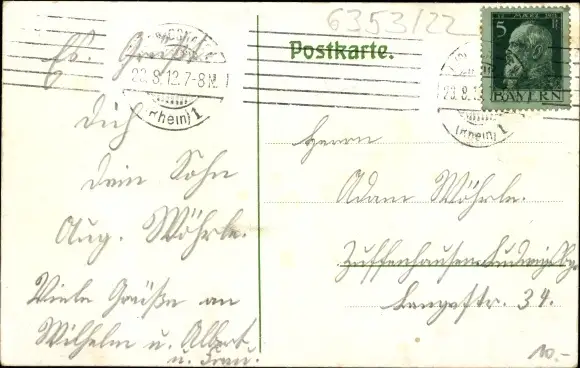 6353/22
Postkarte.
Es Grüßt
Dich
dein Sohn
Aug. Wöhrle.
Viele Grüße an
Wilhelm u. Albert
u. Frau.
23.8.12.7-8N.
(Rhein) 1
23.8.12
(Rhein) 1
5
BAYERN
Herrn
Adam Wöhrle.
Zuffenhausen-Ludwigsbg.
Langestr. 34.
10.-